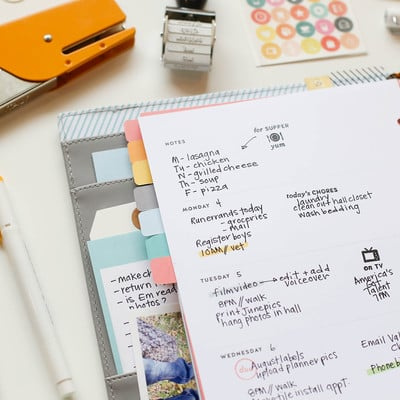 NOTES
for SUPPER
yum
M - lasagna
Tu - chicken
W - grilled cheese
Th - soup
F - pizza
MONDAY 4
Run errands today
- groceries
- mail
Register boys
10AM // vet
today's CHORES
laundry
clean out hall closet
wash bedding
TUESDAY 5
film video
edit + add
voiceover
8PM // walk
print Junepics
hang photos in hall
ON TV
America's
Got
Talent
7PM
WEDNESDAY 6
due
August labels
upload planner pics
8PM // walk
install appt.
Email
Phone
- make
- return
- is Em read
photos?